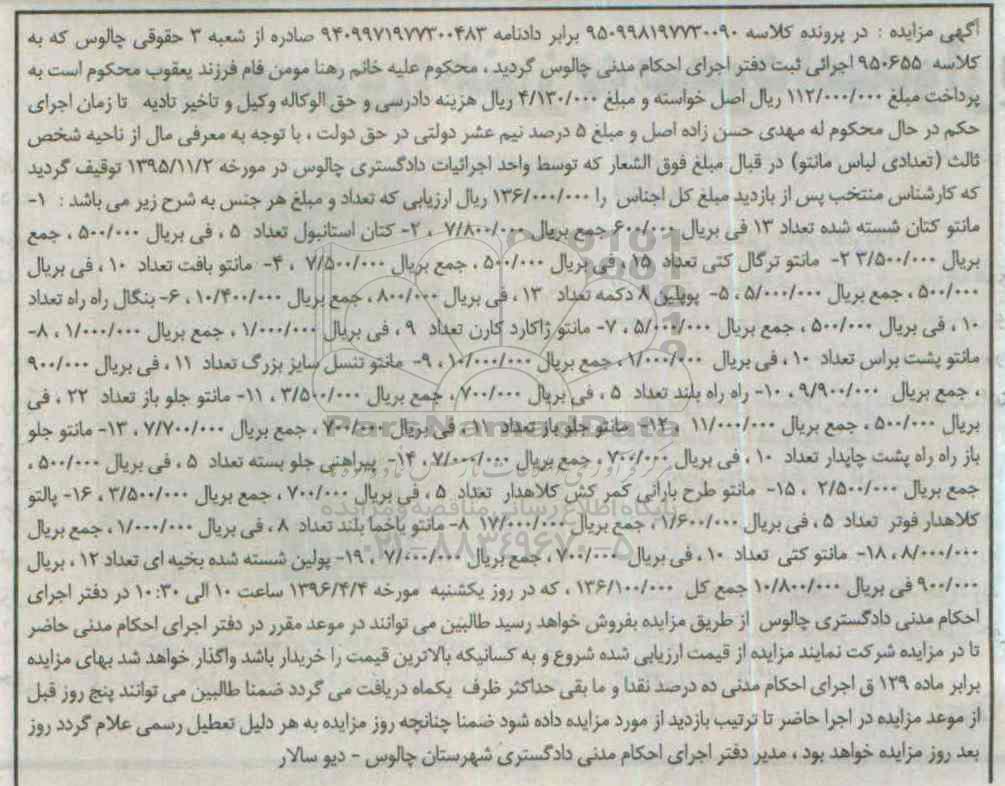 آگهی مزایده : در پرونده کلاسه ۹۵۰۹۹۸۱۹۷۷۳۰۰۰۹۰ برابر دادنامه ۹۴۰۹۹۷۱۹۷۷۳۰۰۴۸۳ صادره از شعبه ۳ حقوقی چالوس که به
کلاسه ۹۵۰۶۵۵ اجرائی ثبت دفتر اجرای احکام مدنی چالوس گردید ، محکوم علیه خانم رهنا مومن فام فرزند یعقوب محکوم است به
پرداخت مبلغ ۱۱۲/۰۰۰/۰۰۰ ریال اصل خواسته و مبلغ ۴/۱۳۰/۰۰۰ ریال هزینه دادرسی و حق الوکاله وکیل و تاخیر تادیه تا زمان اجرای
حکم در حال محکوم له مهدی حسن زاده اصل و مبلغ ۵ درصد نیم عشر دولتی در حق دولت ، با توجه به معرفی مال از ناحیه شخص
ثالث (تعدادی لباس مانتو) در قبال مبلغ فوق الشعار که توسط واحد اجرائیات دادگستری چالوس در مورخه ۱۳۹۵/۱۱/۲ توقیف گردید
که کارشناس منتخب پس از بازدید مبلغ کل اجناس را ۱۳۶/۰۰۰/۰۰۰ ریال ارزیابی که تعداد و مبلغ هر جنس به شرح زیر می باشد : ۱-
مانتو کتان شسته شده تعداد ۱۳ فی بریال ۶۰۰/۰۰۰ جمع بریال ۷/۸۰۰/۰۰۰ ، ۲- کتان استانبول تعداد ۵ ، فی بریال ۵۰۰/۰۰۰ ، جمع
بریال ۳/۵۰۰/۰۰۰ ۲- مانتو ترگال کتی تعداد ۱۵ ، فی بریال ۵۰۰/۰۰۰ ، جمع بریال ۷/۵۰۰/۰۰۰ ، ۴- مانتو بافت تعداد ۱۰ ، فی بریال
۵۰۰/۰۰۰ ، جمع بریال ۵/۰۰۰/۰۰۰ ، ۵- پوپلین ۸ دکمه تعداد ۱۳ ، فی بریال ۸۰۰/۰۰۰ ، جمع بریال ۱۰/۴۰۰/۰۰۰ ، ۶- بنگال راه راه تعداد
۱۰ ، فی بریال ۵۰۰/۰۰۰ ، جمع بریال ۵/۰۰۰/۰۰۰ ، ۷- مانتو ژاکارد کارن تعداد ۹ ، فی بریال ۱/۰۰۰/۰۰۰ ، جمع بریال ۱/۰۰۰/۰۰۰ ، ۸-
مانتو پشت براس تعداد ۱۰ ، فی بریال ۱/۰۰۰/۰۰۰ ، جمع بریال ۱۰/۰۰۰/۰۰۰ ، ۹- مانتو تنسل سایز بزرگ تعداد ۱۱ ، فی بریال ۹۰۰/۰۰۰
، جمع بریال ۹/۹۰۰/۰۰۰ ، ۱۰- راه راه بلند تعداد ۵ ، فی بریال ۷۰۰/۰۰۰ ، جمع بریال ۳/۵۰۰/۰۰۰ ، ۱۱- مانتو جلو باز تعداد ۲۲ ، فی
بریال ۵۰۰/۰۰۰ ، جمع بریال ۱۱/۰۰۰/۰۰۰ ، ۱۲- مانتو جلو باز تعداد ۱۱ ، فی بریال ۷۰۰/۰۰۰ ، جمع بریال ۷/۷۰۰/۰۰۰ ، ۱۳- مانتو جلو
باز راه راه پشت چاپدار تعداد ۱۰ ، فی بریال ۷۰۰/۰۰۰ ، جمع بریال ۷/۰۰۰/۰۰۰ ، ۱۴- پیراهنی جلو بسته تعداد ۵ ، فی بریال ۵۰۰/۰۰۰ ،
جمع بریال ۲/۵۰۰/۰۰۰ ، ۱۵- مانتو طرح بارانی کمر کش کلاهدار تعداد ۵ ، فی بریال ۷۰۰/۰۰۰ ، جمع بریال ۳/۵۰۰/۰۰۰ ، ۱۶- پالتو
کلاهدار فوتر تعداد ۵ ، فی بریال ۱/۶۰۰/۰۰۰ ، جمع بریال ۱۷/۰۰۰/۰۰۰ ۸- مانتو باخما بلند تعداد ۸ ، فی بریال ۱/۰۰۰/۰۰۰ ، جمع بریال
۸/۰۰۰/۰۰۰ ، ۱۸- مانتو کتی تعداد ۱۰ ، فی بریال ۷۰۰/۰۰۰ ، جمع بریال ۷/۰۰۰/۰۰۰ ، ۱۹- پولین شسته شده بخیه ای تعداد ۱۲ ، بریال
۹۰۰/۰۰۰ فی بریال ۱۰/۸۰۰/۰۰۰ جمع کل ۱۳۶/۱۰۰/۰۰۰ ، که در روز یکشنبه مورخه ۱۳۹۶/۴/۴ ساعت ۱۰ الی ۱۰:۳۰ در دفتر اجرای
احکام مدنی دادگستری چالوس از طریق مزایده بفروش خواهد رسید طالبین می توانند در موعد مقرر در دفتر اجرای احکام مدنی حاضر
تا در مزایده شرکت نمایند مزایده از قیمت ارزیابی شده شروع و به کسانیکه بالاترین قیمت را خریدار باشد واگذار خواهد شد بهای مزایده
برابر ماده ۱۲۹ ق اجرای احکام مدنی ده درصد نقدا و ما بقی حداکثر ظرف یکماه دریافت می گردد ضمنا طالبین می توانند پنج روز قبل
از موعد مزایده در اجرا حاضر تا ترتیب بازدید از مورد مزایده داده شود ضمنا چنانچه روز مزایده به هر دلیل تعطیل رسمی علام گردد روز
بعد روز مزایده خواهد بود ، مدیر دفتر اجرای احکام مدنی دادگستری شهرستان چالوس - دیو سالار
ParsNamadData
پایگاه اطلاع رسانی مناقصه و مزایده
۰۲۱-۸۸۳۴۹۶۷۰-۵